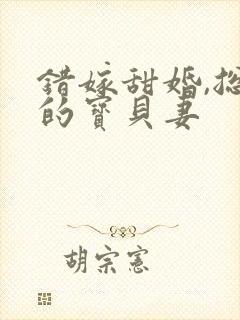 錯嫁甜婚,总
的寶貝妻
胡宗憲